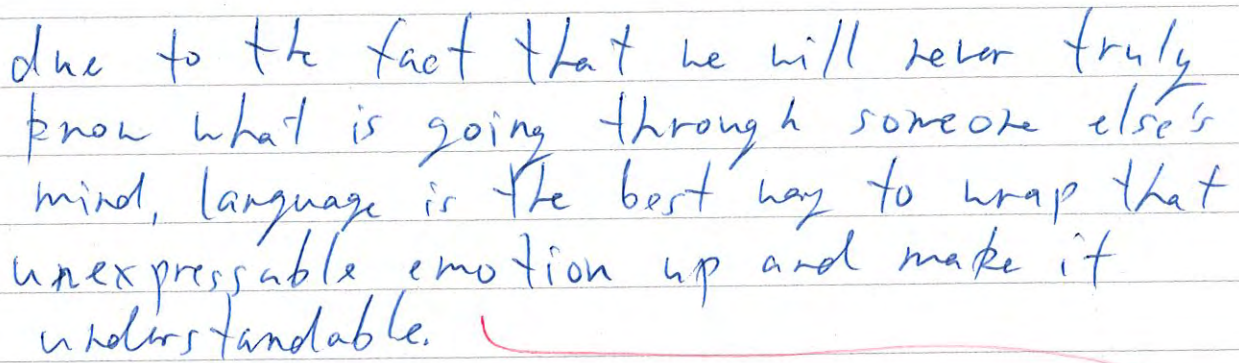 due to the fact that we will never truly
know what is going through someone else's
mind, language is the best way to wrap that
unexpressable emotion up and make it
understandable.